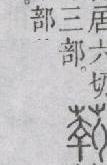 居六切
三部。
部